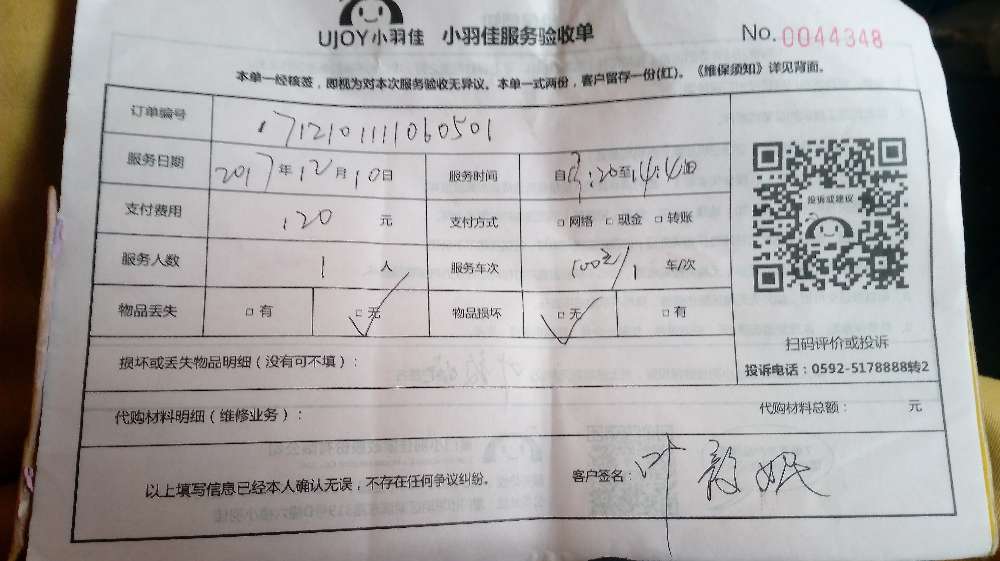 UJOY小羽佳 小羽佳服务验收单 No.0044348
本单一经核签，即视为对本次服务验收无异议。本单一式两份，客户留存一份(红)。《维保须知》详见背面。
订单编号 1712101111060501
服务日期 2017年12月10日 服务时间 自 :20至14:40
支付费用 120 元 支付方式 □网络 □现金 □转账
服务人数 1 人 服务车次 100元/1 车/次
物品丢失 □有 □无 物品损坏 □无 □有
损坏或丢失物品明细（没有可不填）：
代购材料明细（维修业务）： 代购材料总额： 元
以上填写信息已经本人确认无误，不存在任何争议纠纷。 客户签名：叶
投诉或建议
扫码评价或投诉
投诉电话：0592-5178888转2